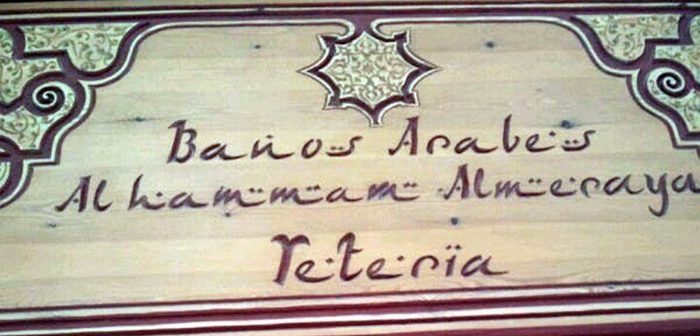 Baños Arabes
Alhammam Almeraya
Tetería